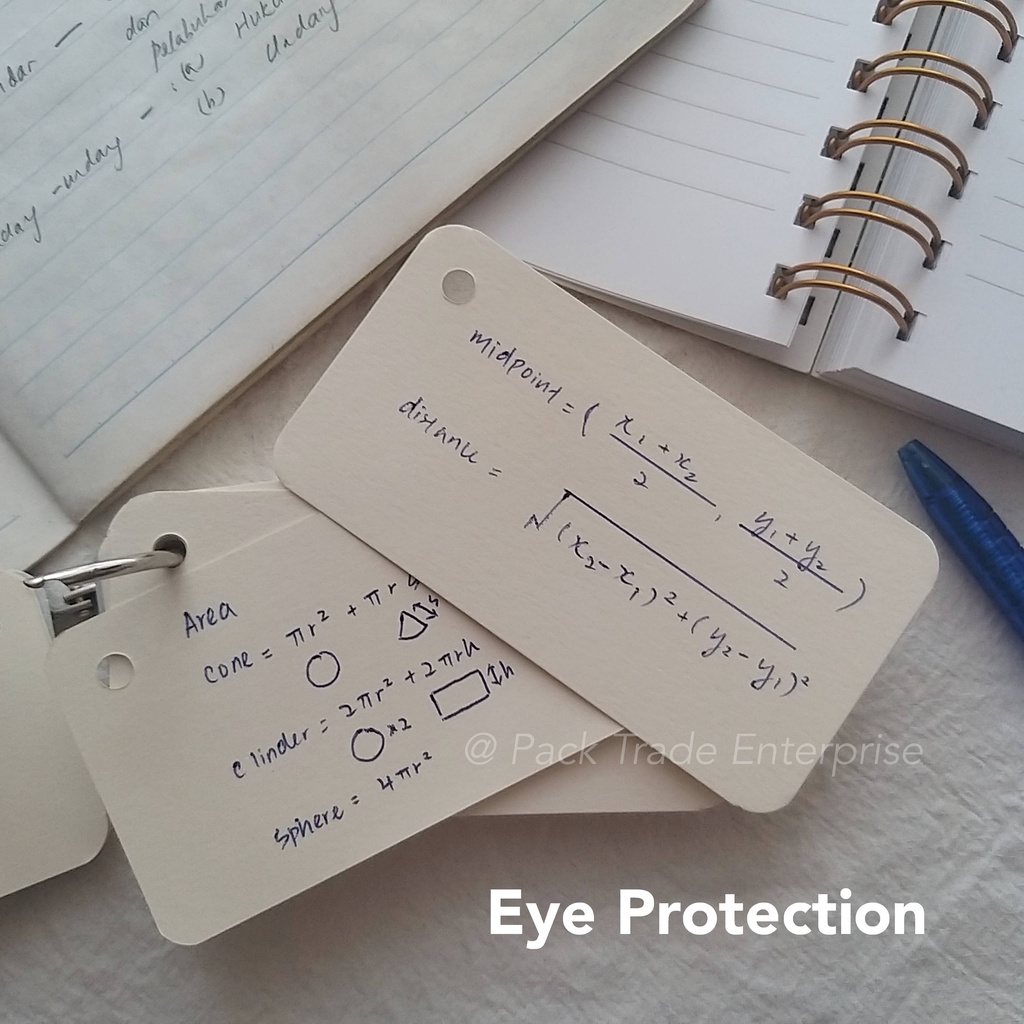 dar — dan
Pelabuhan
: (a) Huku
(b) Undang
day - unday -
midpoint = ( x₁ + x₂ / 2 , y₁ + y₂ / 2 )
distance = √(x₂ - x₁)² + (y₂ - y₁)²
Area
cone = πr² + πr
clinder = 2πr² + 2πrh
×2 h
sphere = 4πr²
@ Pack Trade Enterprise
Eye Protection